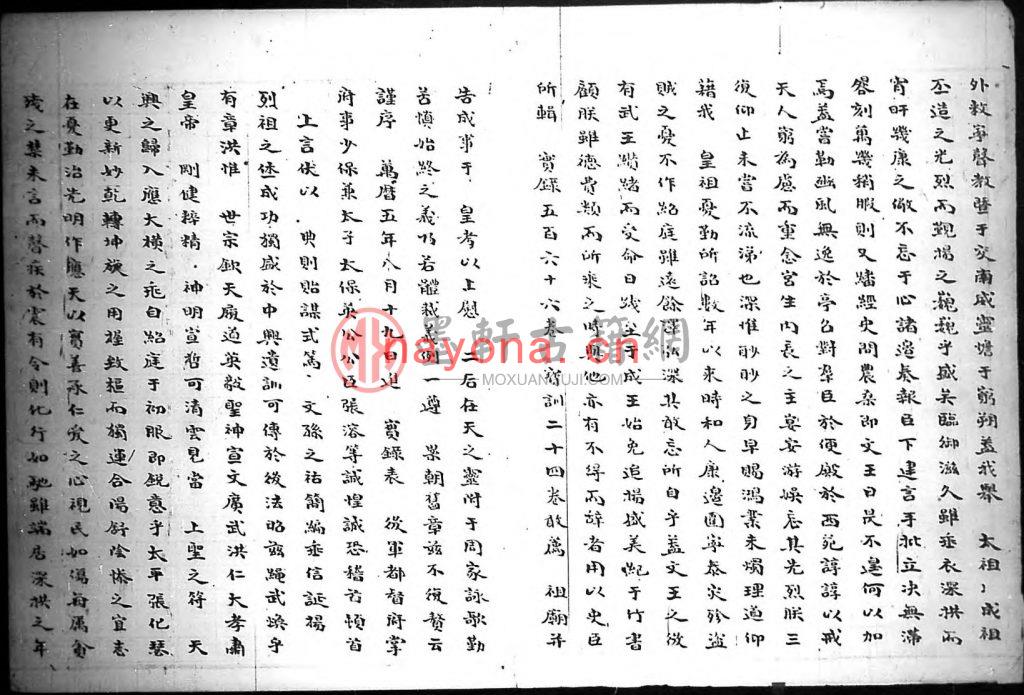 外敎寧聲敎曁于交南威靈憺于窮朔蓋我舉 太祖〻成祖
丕造之光烈而覲揚之巍巍乎盛矣臨御滋久雖垂衣深拱而
宵旰幾康之儆不忘于心諸邊奏報臣下建言手批立決無滯
晷刻萬幾稍暇則又繙經史問農桑即文王日昃不遑何以加
焉蓋嘗勒豳風無逸於亭召對羣臣於便殿於西苑諄諄以戒
天人窮為慮而重念宮生內長之主宴安游娛忘其先烈朕三
復仰止未嘗不流涕也深惟眇眇之身早賜鴻業未燭理道仰
籍我 皇祖憂勤所詒數年以來時和人康邊圉寧泰災殄盜
賊之憂不作紹庭雖遠餘澤弘深其敢忘所自乎蓋文王之後
有武王纘緒而受命日淺至于成王始克追揚盛美紀于竹書
顧朕雖德菲類而所乘之時與地亦有不得而辭者用以史臣
所輯 實錄五百六十六卷 寶訓二十四卷敢薦 祖廟并
告成事于 皇考以上慰 二后在天之靈附于周家詠歌勤
苦慎始終之義乃若體裁義例一遵 累朝舊章茲不復贅云
謹序 萬曆五年八月十九日進 實錄表 後軍都督府掌
府事少保兼太子太保英公公臣張溶等誠惶誠恐稽首頓首
上言伏以 典則貽謀式篤 文孫之祜簡編垂信誕揚
烈祖之休成功獨盛於中興遺訓可傳於後法昭茲繩武煥乎
有章洪惟 世宗欽天履道英毅聖神宣文廣武洪仁大孝肅
皇帝 剛健粹精 神明宣哲可清雲見當 上聖之符 天
興之歸入應大橫之兆自紹庭于初服即銳意乎太平張化琴
以更新妙乾轉坤旋之用握致樞而獨運合陽舒陰慘之宜志
在憂勤治先明作應天以實善承仁愛之心視民如傷每厲食
淩之禁未言而聲疾於震有令則化行如馳雖端居深拱之年
墨軒古籍網
hayona.cn
MOXUANGUJI.COM